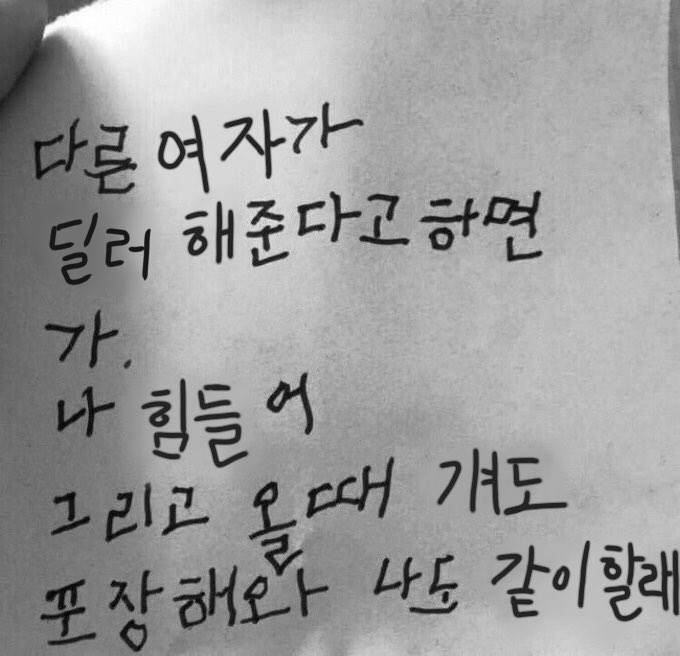 다른 여자가
딜러 해준다고 하면
가.
나 힘들어
그리고 올때 걔도
포장해와 나도 같이할래